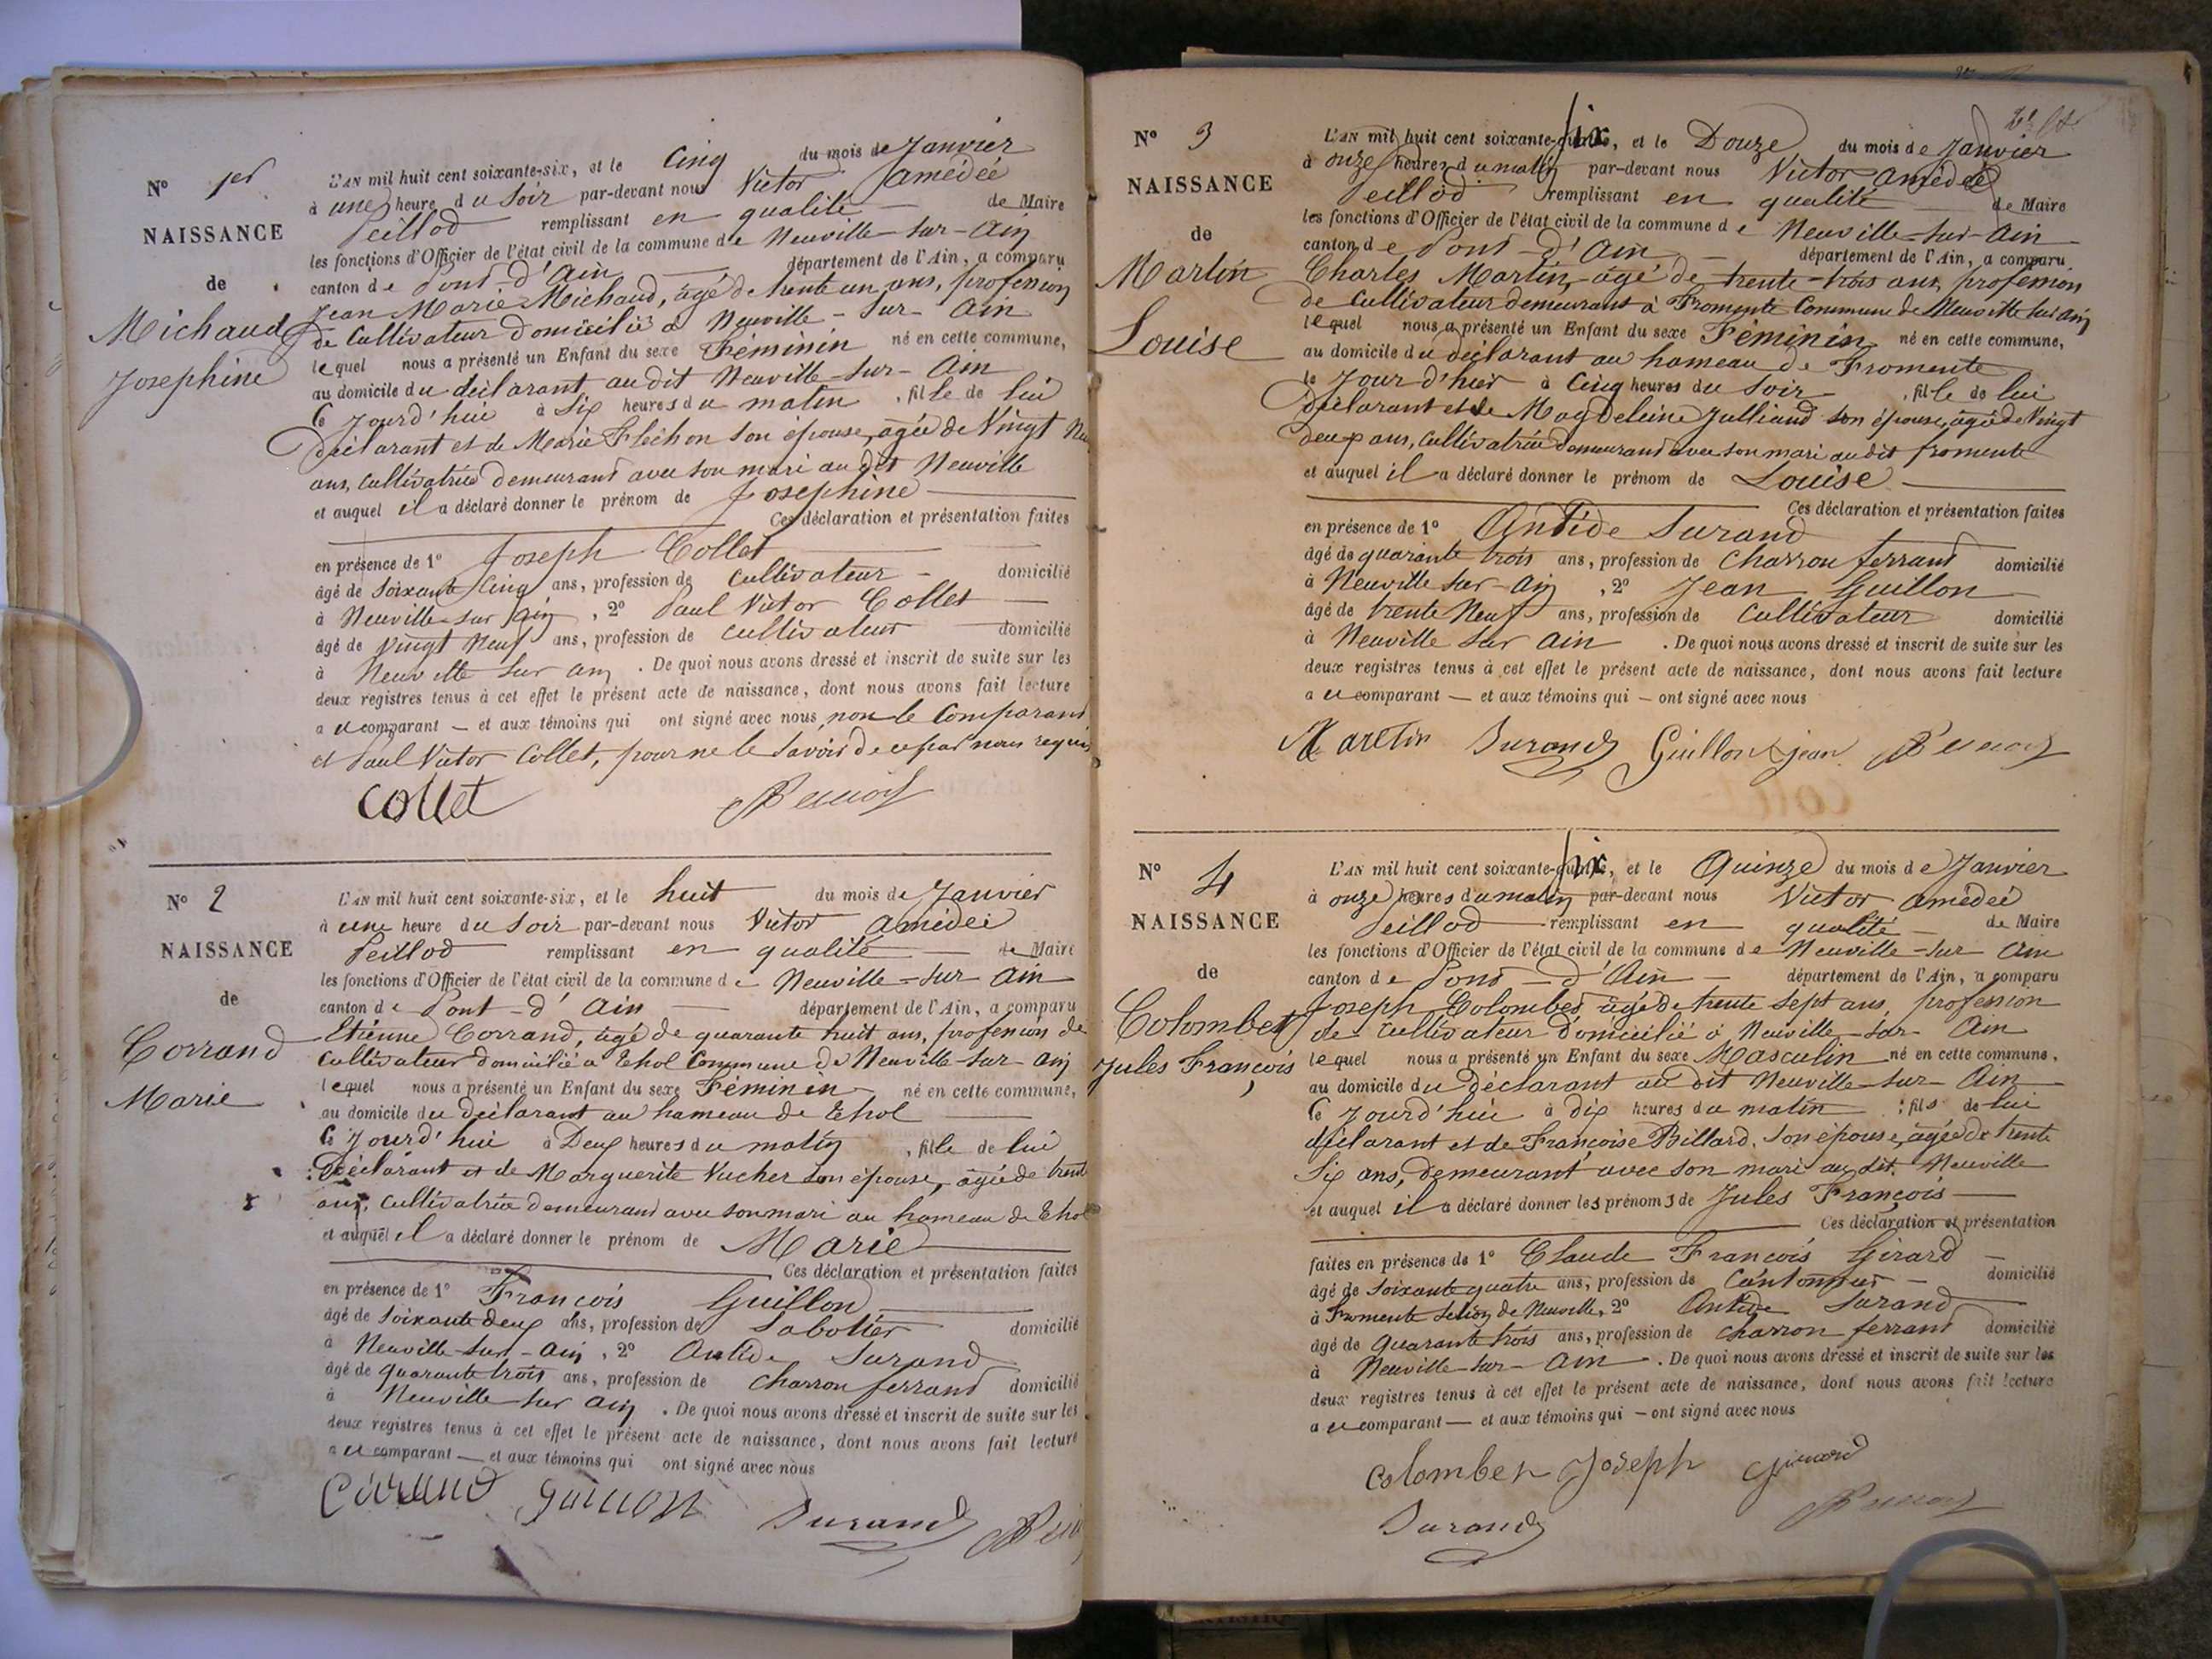 N° 1er
NAISSANCE
de
Michaud
Josephine
L'AN mil huit cent soixante-six, et le Cinq du mois de Janvier
à une heure du Soir par-devant nous Victor Amédée
Peillod remplissant en qualité de Maire
les fonctions d'Officier de l'état civil de la commune de Neuville-sur-Ain
canton de Pont-d'Ain département de l'Ain, a comparu
Jean Marie Michaud, âgé de trente un ans, profession
de Cultivateur domicilié à Neuville-sur-Ain
lequel nous a présenté un Enfant du sexe Féminin né en cette commune,
au domicile du déclarant, audit Neuville-sur-Ain
Ce Jourd'hui à Six heures du matin, fille de lui
Déclarant et de Marie Fléchon son epouse, agée de Vingt
ans, cultivatrice demeurant avec son mari au dit Neuville
et auquel il a déclaré donner le prénom de Josephine
Ces déclaration et présentation faites
en présence de 1° Joseph Collet
âgé de Soixante Cinq ans, profession de Cultivateur domicilié
à Neuville-sur Ain, 2° Paul Victor Collet
âgé de Vingt Neuf ans, profession de cultivateur domicilié
à Neuville sur ain. De quoi nous avons dressé et inscrit de suite sur les
deux registres tenus à cet effet le présent acte de naissance, dont nous avons fait lecture
au comparant — et aux témoins qui ont signé avec nous non le Comparant
et Paul Victor Collet, pour ne le savoir de ce par nous requis
Collet
N° 2
NAISSANCE
de
Corrand
Marie
L'AN mil huit cent soixante-six, et le huit du mois de Janvier
à une heure du Soir par-devant nous Victor Amédée
Peillod remplissant en qualité de Maire
les fonctions d'Officier de l'état civil de la commune de Neuville-sur Ain
canton de Pont-d'Ain département de l'Ain, a comparu
Etienne Corrand, âgé de quarante huit ans, profession de
Cultivateur domicilié à Thol Commune de Neuville-sur-Ain
lequel nous a présenté un Enfant du sexe Féminin né en cette commune,
au domicile du déclarant au hameau de Thol
Ce Jourd'hui à Deux heures du matin, fille de lui
Déclarant et de Marguerite Vucher son épouse, agée de trent
ans, cultivatrice demeurant avec son mari au hameau de Thol
et auquel il a déclaré donner le prénom de Marie
Ces déclaration et présentation faites
en présence de 1° François Guillon
âgé de Soixante deux ans, profession de Sabotier domicilié
à Neuville-sur-Ain, 2° Antide Durand
âgé de quarante trois ans, profession de Charron ferrant domicilié
à Neuville sur Ain. De quoi nous avons dressé et inscrit de suite sur les
deux registres tenus à cet effet le présent acte de naissance, dont nous avons fait lecture
au comparant — et aux témoins qui ont signé avec nous
Guillon
Durand
N° 3
NAISSANCE
de
Martin
Louise
L'AN mil huit cent soixante-six, et le Douze du mois de Janvier
à onze heures du matin par-devant nous Victor Amédée
Peillod remplissant en qualité de Maire
les fonctions d'Officier de l'état civil de la commune de Neuville-sur-Ain
canton de Pont-d'Ain département de l'Ain, a comparu
Charles Martin, âgé de trente-trois ans, profession
de cultivateur demeurant à Fromente Commune de Neuville sur Ain
lequel nous a présenté un Enfant du sexe Féminin né en cette commune,
au domicile du déclarant au hameau de Fromente
le Jour d'hier à Cinq heures du Soir, fille de lui
Déclarant et de Magdeleine Julliand son épouse, agée de Vingt
deux ans, cultivatrice demeurant avec son mari audit fromente
et auquel il a déclaré donner le prénom de Louise
Ces déclaration et présentation faites
en présence de 1° Antide Durand
âgé de quarante trois ans, profession de Charron ferrant domicilié
à Neuville sur-Ain, 2° Jean Guillon
âgé de trente Neuf ans, profession de Cultivateur domicilié
à Neuville sur Ain. De quoi nous avons dressé et inscrit de suite sur les
deux registres tenus à cet effet le présent acte de naissance, dont nous avons fait lecture
au comparant — et aux témoins qui — ont signé avec nous
Martin Durand Guillon jean
N° 4
NAISSANCE
de
Colombet
Jules François
L'AN mil huit cent soixante-six, et le Quinze du mois de Janvier
à onze heures du matin par-devant nous Victor Amédée
Peillod remplissant en qualité de Maire
les fonctions d'Officier de l'état civil de la commune de Neuville-sur Ain
canton de Pont-d'Ain département de l'Ain, a comparu
Joseph Colombet, âgé de trente sept ans, profession
de Cultivateur domicilié à Neuville-sur-Ain
lequel nous a présenté un Enfant du sexe Masculin né en cette commune,
au domicile du déclarant au dit Neuville-sur-Ain
Ce Jourd'hui à dix heures du matin, fils de lui
déclarant et de Françoise Billard, son épouse, agée de trente
Six ans, demeurant avec son mari au dit Neuville
et auquel il a déclaré donner les prénoms de Jules François
Ces déclaration et présentation
faites en présence de 1° Claude François Girard
âgé de Soixante quatre ans, profession de Cantonnier domicilié
à Fromente section de Neuville, 2° Antide Durand
âgé de Quarante trois ans, profession de Charron ferrant domicilié
à Neuville-sur-Ain. De quoi nous avons dressé et inscrit de suite sur les
deux registres tenus à cet effet le présent acte de naissance, dont nous avons fait lecture
au comparant — et aux témoins qui — ont signé avec nous
Colombet Joseph Girard
Durand